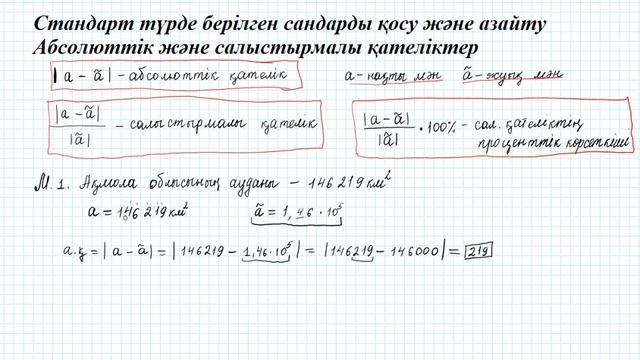 Стандарт түрде берілген сандарды қосу және азайту
Абсолюттік және салыстырмалы қателіктер
|a - ã| - абсолюттік қателік
a - нақты мән ã - жуық мән
|a - ã| / |ã| - салыстырмалы қателік
|a - ã| / |ã| · 100% - сал. қателіктің проценттік көрсеткіші
М.1. Ақмола облысының ауданы - 146 219 км²
a = 146 219 км² ã = 1,46 · 10⁵
а.қ = |a - ã| = |146219 - 1,46·10⁵| = |146219 - 146000| = 219